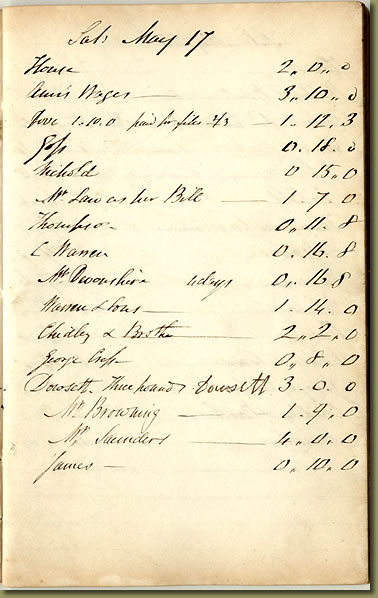 Sat: May 17
House 2,, 0,, 0
Ann's Wages — 3,, 10,, 0
1. 10. 0 paid for files 2/3 — 1 - 12. 3
0. 18. 0
Nichold 0 15,, 0
Mr. Law as per Bill — 1. 7. 0
Thompson 0,, 11. 8
C Warren 0. 16. 8
Mr. Devonshire days 0,, 16 8
Warren & Sons — 1. 14. 0
Chidley & Brother 2,, 2,, 0
George 0,, 8,, 0
Dowsett Three pounds Dowsett 3 - 0. 0
Mr. Browning — 1. 9,, 0
Mr. Saunders — 4. 0. 0
James — 0,, 10. 0